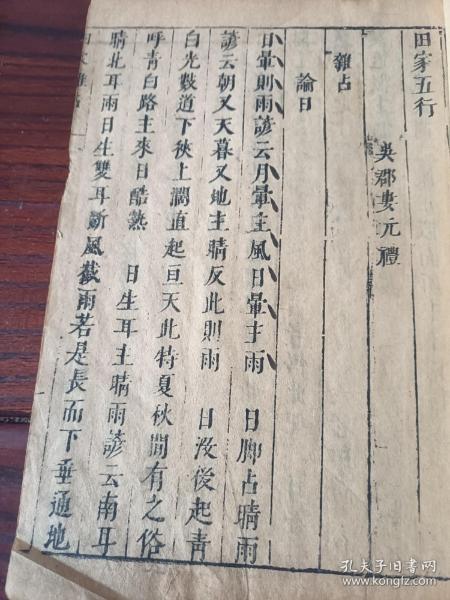 田家五行
吳郡婁元禮
雜占
論日
日暈則雨諺云月暈主風日暈主雨　日腳占晴雨
諺云朝又天暮又地主晴反此則雨　日沒後起青
白光數道下狹上濶直起亘天此特夏秋間有之俗
呼青白路主來日酷熱　日生耳主晴雨諺云南耳
晴北耳雨日生雙耳斷風截雨若是長而下垂通地
孔夫子旧书网
www.kongfz.com